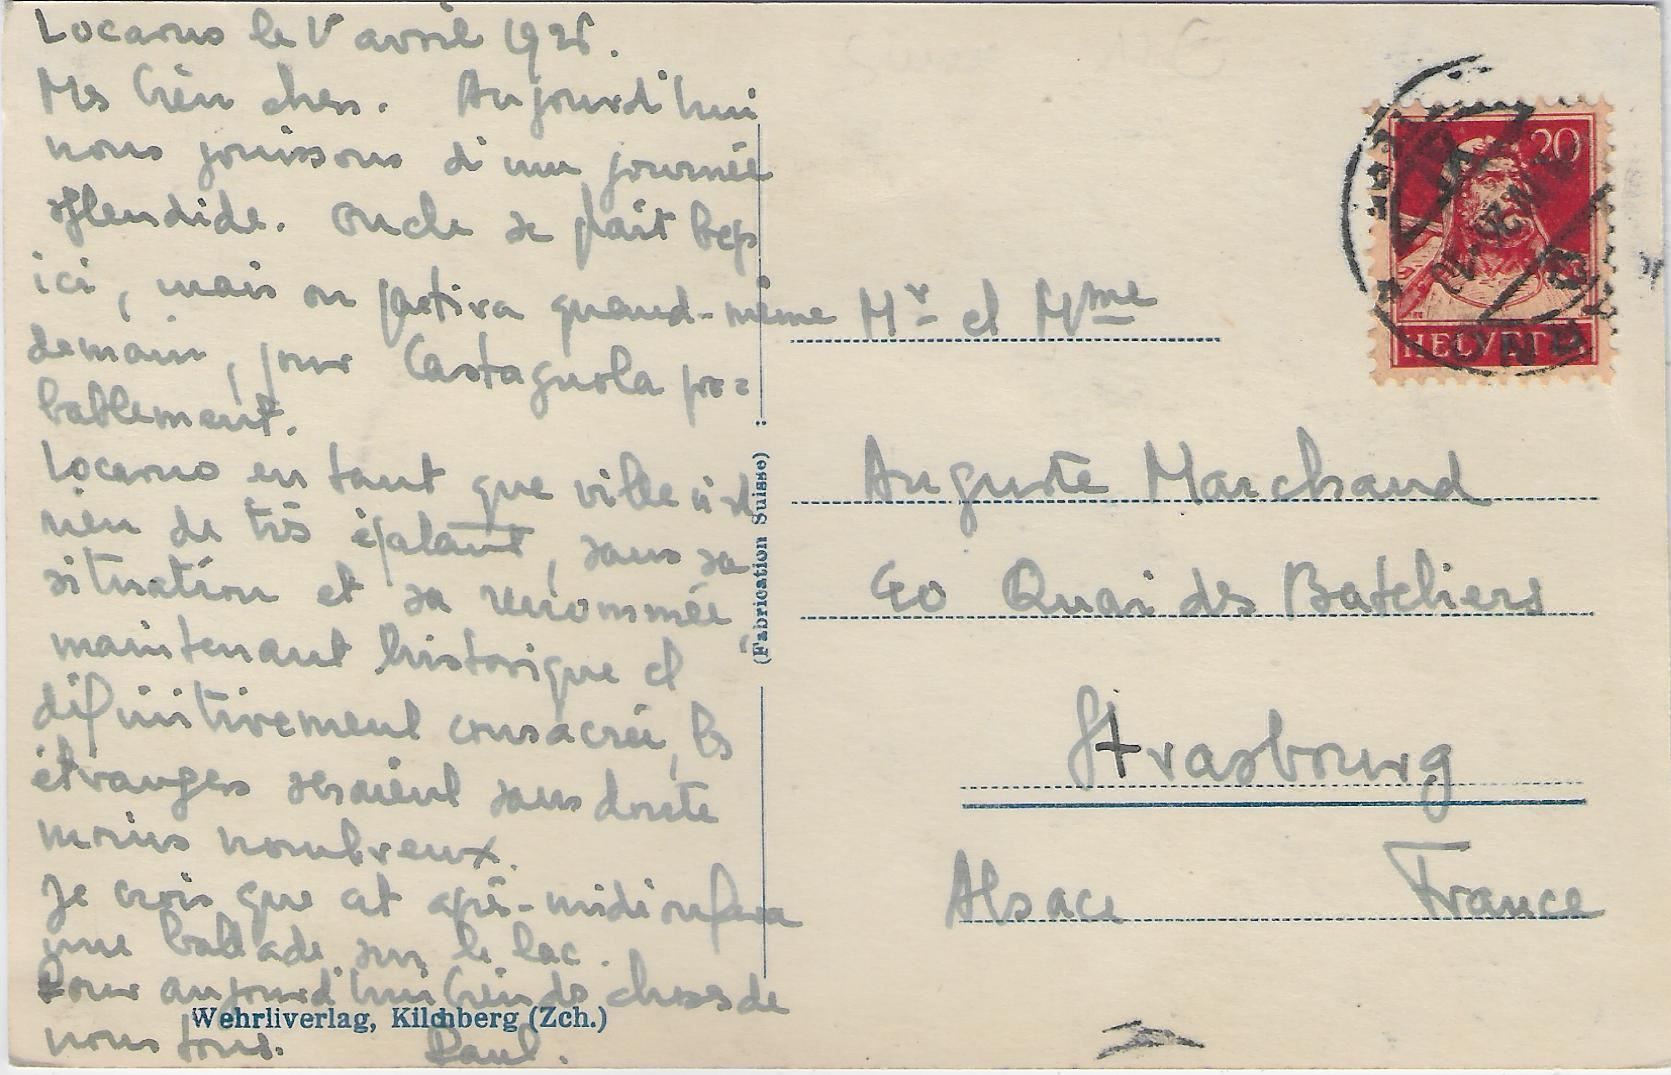 Locarno le 1r avril 1926.
Mes bien chers. Aujourd'hui
nous jouissons d'une journée
splendide. Oncle se plait bcp
ici, mais on partira quand-même
demain, pour Castagnola pro=
bablement.
Locarno en tant que ville n'est
rien de très épatant, sans sa
situation et sa renommée,
maintenant historique et
définitivement consacrée, les
étrangers seraient sans doute
moins nombreux.
Je crois que cet après-midi on fera
une ballade sur le lac.
Pour aujourd'hui bien des choses de
nous tous. Paul.
Wehrliverlag, Kilchberg (Zch.)
(Fabrication Suisse)
20
HELVETIA
Mr et Mme
Auguste Marchand
40 Quai des Bateliers
Strasbourg
Alsace France